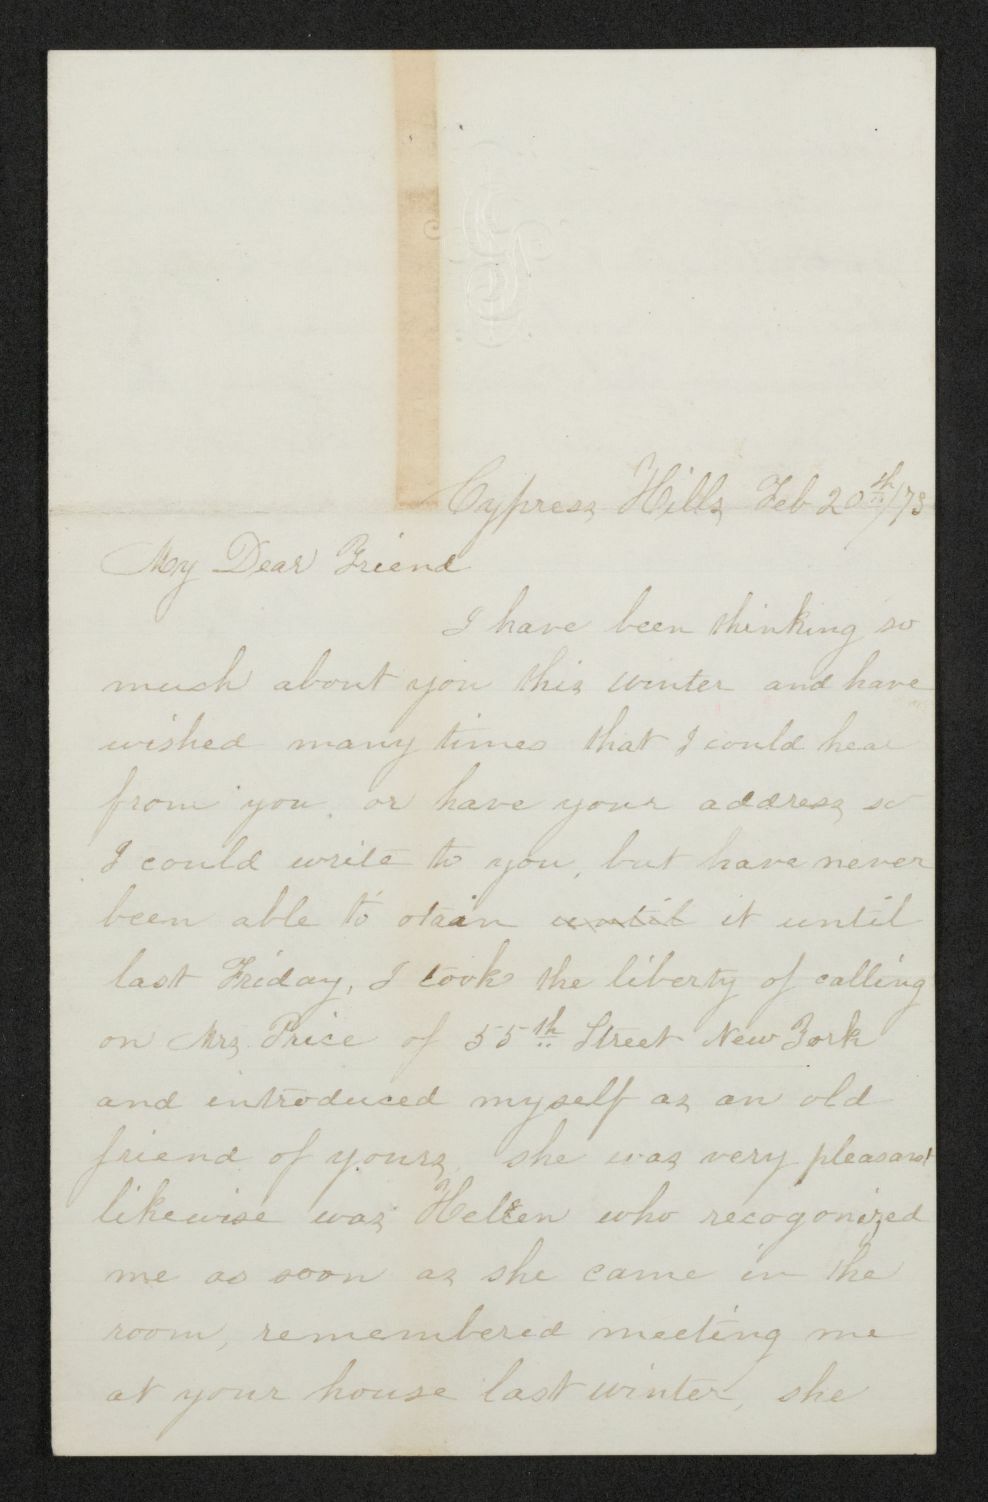 Cypress Hills Feb 20th/73
My Dear Friend
I have been thinking so
much about you this winter and have
wished many times that I could hear
from you or have your address so
I could write to you, but have never
been able to otain until it until
last Friday, I took the liberty of calling
on Mrs. Price of 55th Street New York
and introduced myself as an old
friend of yours, she was very pleasant
likewise was Hellen who recogonized
me as soon as she came in the
room, remembered meeting me
at your house last winter, she